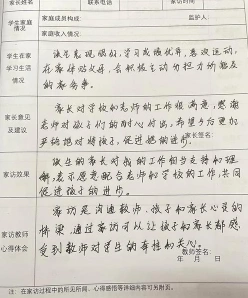 家长姓名 联系电话 家访时间
学生家庭情况
家庭成员构成: 监护人:
家庭收入情况:
学生在家学习生活情况
该生表现很好,学习成绩优异,喜欢运动,
在家体贴父母,会积极主动分担力所能及
的家务事。
家长意见及建议
家长对学校和老师的工作很满意,感谢
老师对孩子们的耐心付出,希望多沟通
严格对待孩子,促进他的进步。
家长签名:
家访效果
该生的家长对我的工作相当支持和理
解,表示愿意配合老师和学校的工作,共同
促进孩子的进步。
家访教师心得体会
家访是沟通教师、孩子和家长心灵的
桥梁,通过家访可以让孩子和家长都感
受到教师对学生的
和关心。
教师签名:
年 月 日
注:在家访过程中的所见所闻、心得感悟等详细内容可另附页。